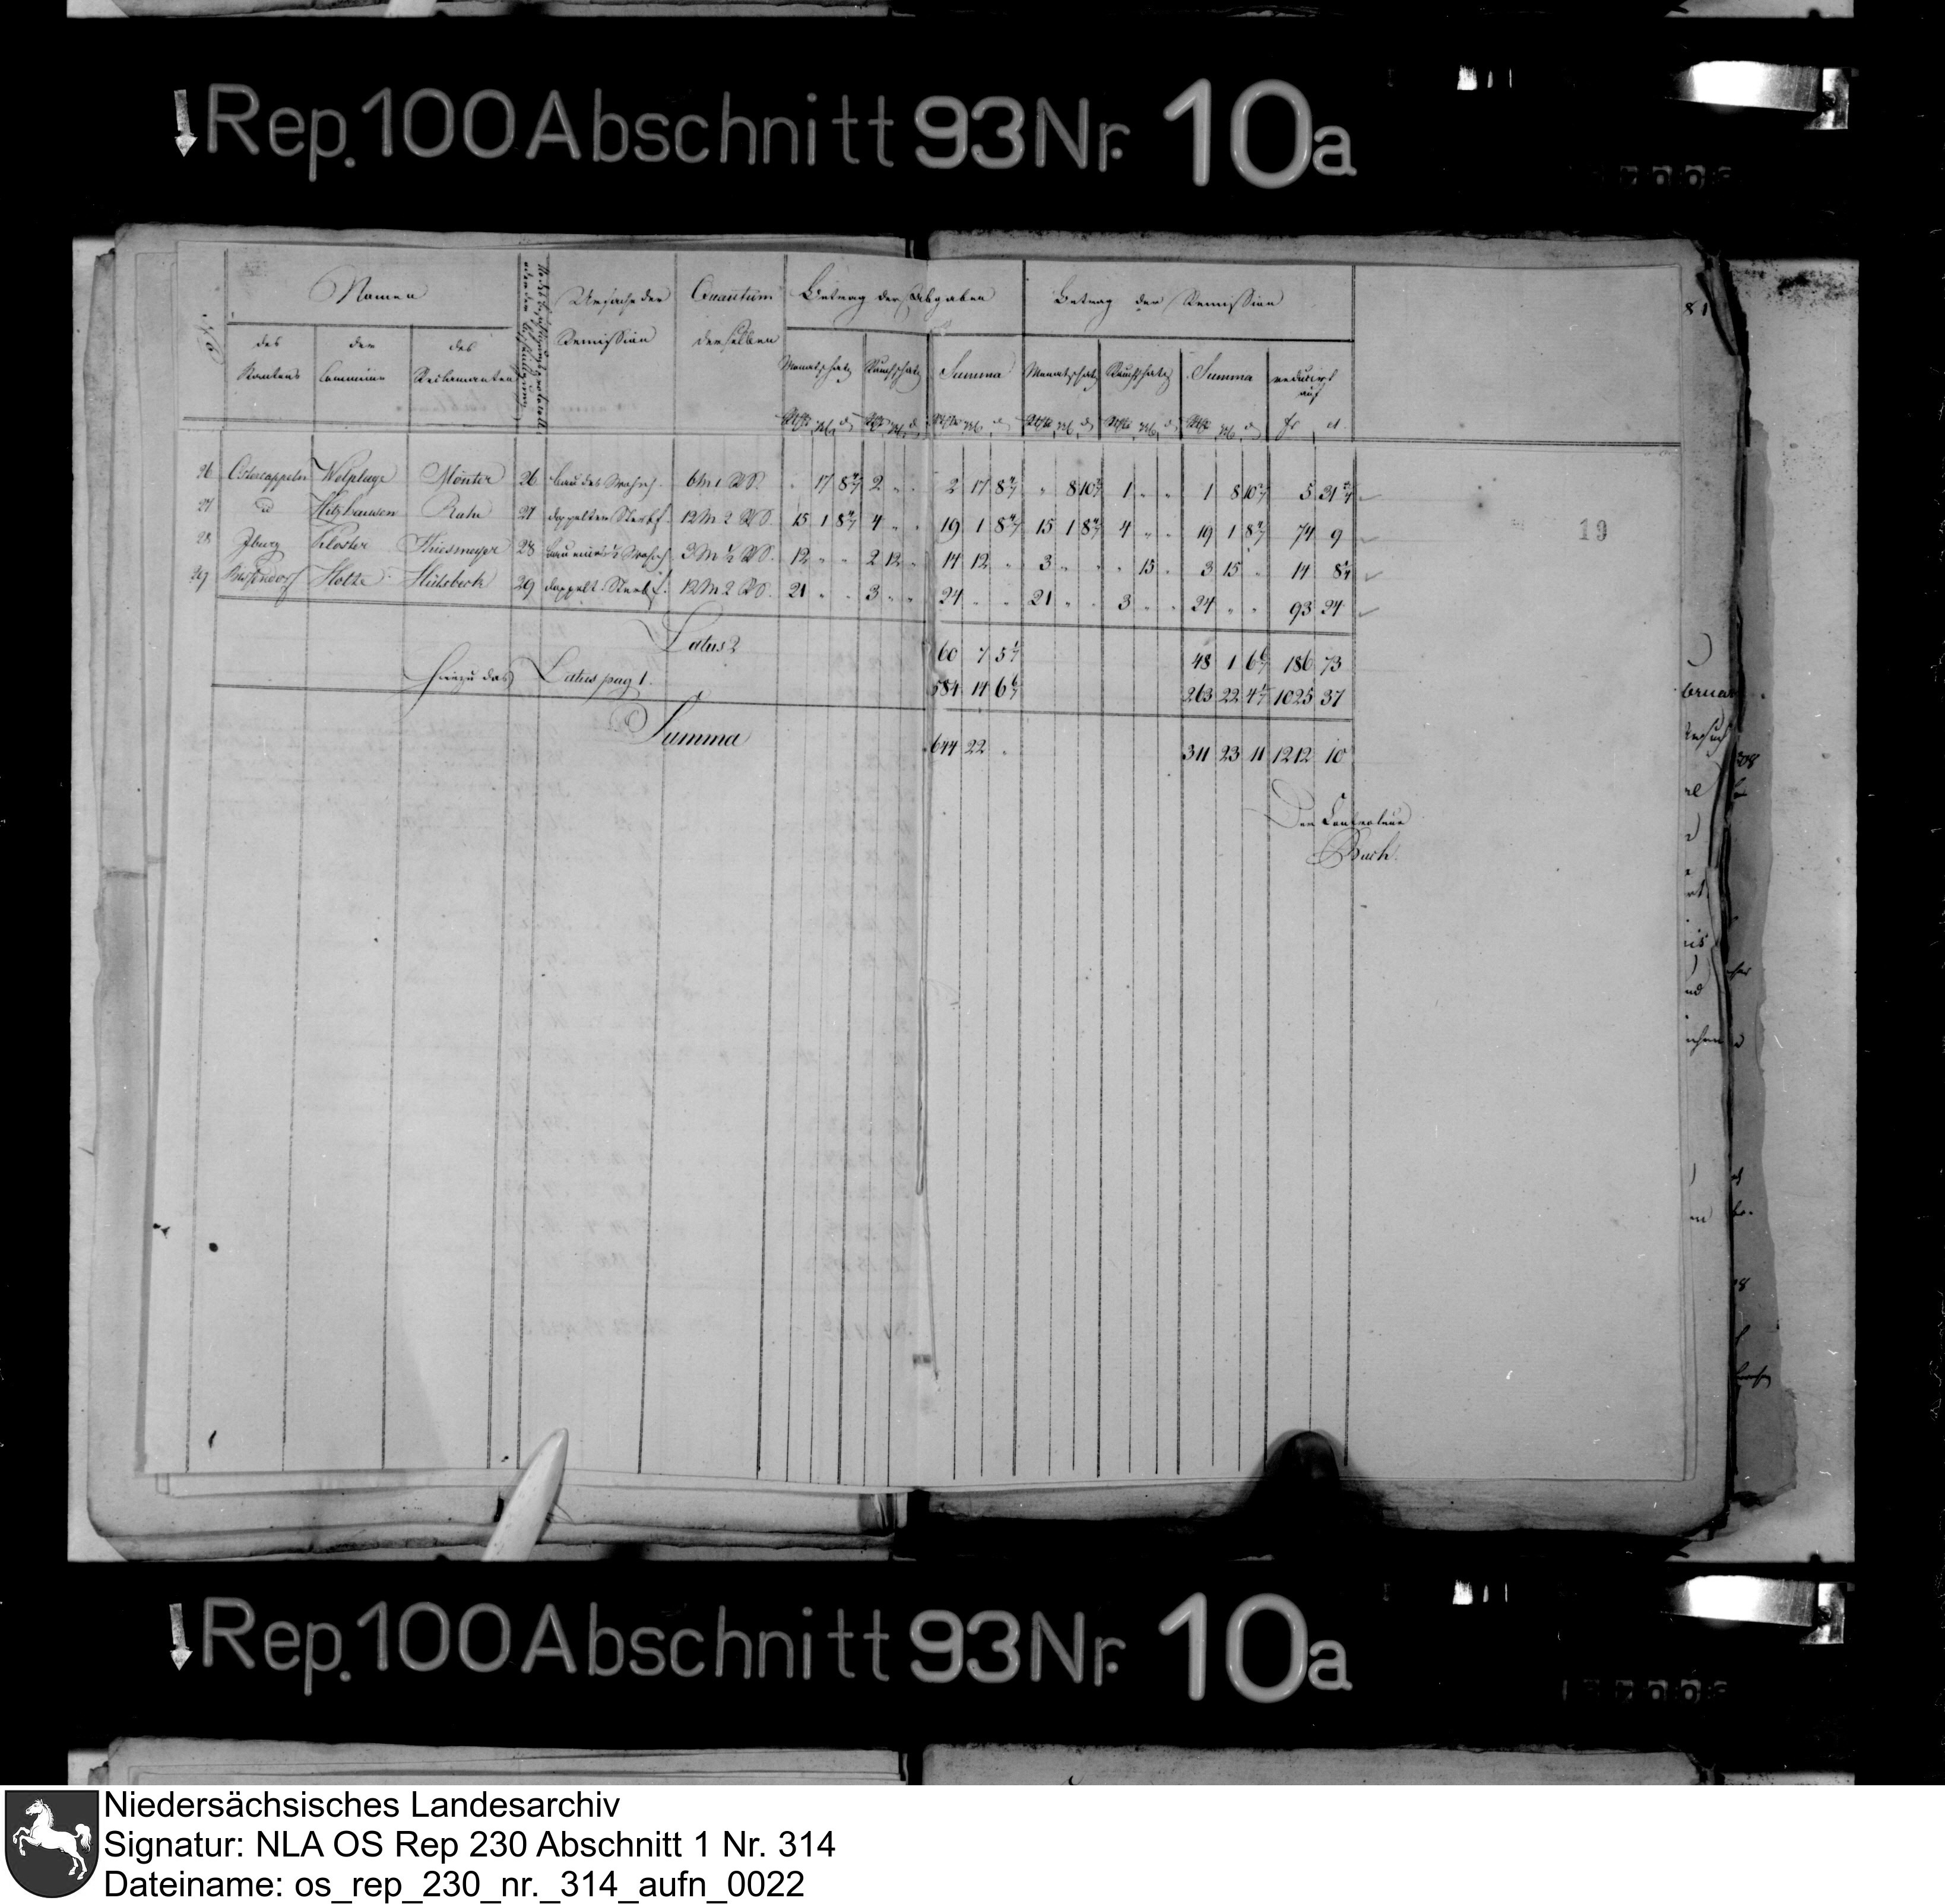 Rep. 100 Abschnitt 93 Nr. 10a
Namen
Ursache der Remission
Quantum derselben
Betrag der Abgaben
Betrag der Remission
No
des Kantons
der Commune
des Reclamanten
Monatschatz
Rauchschatz
Summa
Monatschatz
Rauchschatz
Summa
reducirt auf
fr ct.
26 Ostercappeln Welplage Mönter 26 Bau des Wohnh. 6 M 1 RS. " 17 8 4/7 2 " " 2 17 8 4/7 " 8 10 2/7 1 " " 1 8 10 2/7 5 31
27 do Hitzhausen Rahe 27 doppelten Sterbf. 12 M 2 RS. 15 1 8 4/7 4 " " 19 1 8 4/7 15 1 8 4/7 4 " " 19 1 8 4/7 74 9
28 Iburg Kloster Thiesmeyer 28 Bau eines 1/2 Wohnh. 3 M 1/2 RS. 12 " " 2 12 " 14 12 " 3 " " " 15 " 3 15 " 14 84
29 Holte Hülsbeck 29 doppelt. Sterbf. 12 M 2 RS. 21 " " 3 " " 24 " " 21 " " 3 " " 24 " " 93 24
Latus 2 60 7 5 1/7 48 1 6 6/7 186 73
hiezu das Latus pag 1. 584 14 6 6/7 263 22 4 1/7 1025 37
Summa 644 22 " 311 23 11 1212 10
Der Controleur
19
81
Rep. 100 Abschnitt 93 Nr. 10a
Niedersächsisches Landesarchiv
Signatur: NLA OS Rep 230 Abschnitt 1 Nr. 314
Dateiname: os_rep_230_nr._314_aufn_0022